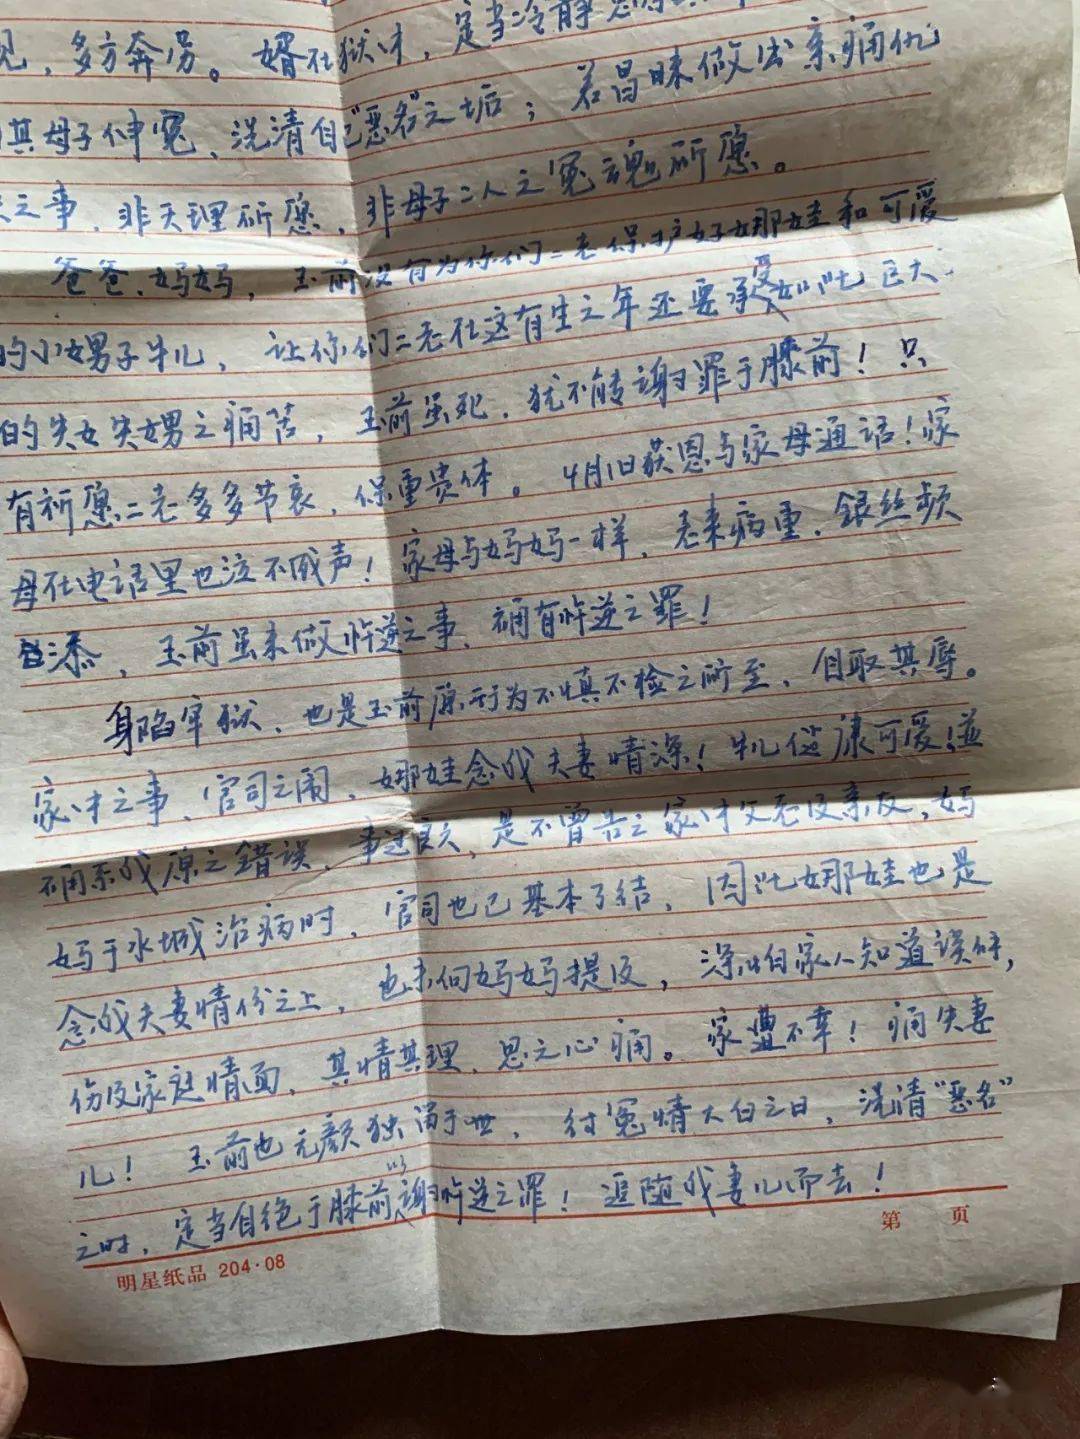 见，多方奔劳。婿在狱中，定当冷静
其母子伸冤、洗清自己"恶名"之垢；若昌昧做出亲痛仇
之事、非天理所愿，非母子二人之冤魂所愿。
爸爸、妈妈，玉前没有为你们二老保护好娜娃和可爱
的小甥子牛儿，让你们二老在这有生之年还要承受如此巨大
的失女失甥之痛苦，玉前虽死、犹不能谢罪于膝前！只
有祈愿二老多多节哀、保重贵体。4月1日获恩与家母通话！家
母在电话里也泣不成声！家母与妈妈一样、老来病重、银丝频
添，玉前虽未做忤逆之事、确有忤逆之罪！
身陷牢狱、也是玉前原行为不慎不检之所至、自取其辱。
家中之事、官司之闹、娜娃念我夫妻情深！牛儿健康可爱！并
不闹系我原之错误、事过良久，是不曾告之家中父老及亲友，妈
妈于水城治病时，官司也已基本了结，因此娜娃也是
念我夫妻情份之上，也未向妈妈提及，深怕家人知道误解，
伤及家庭情面、其情其理、思之心痛。家遭不幸！痛失妻
儿！玉前也无颜独留于世、待冤情大白之日，洗清"恶名"
之时，定当自绝于膝前以谢忤逆之罪！追随我妻儿而去！
第 页
明星纸品 204·08